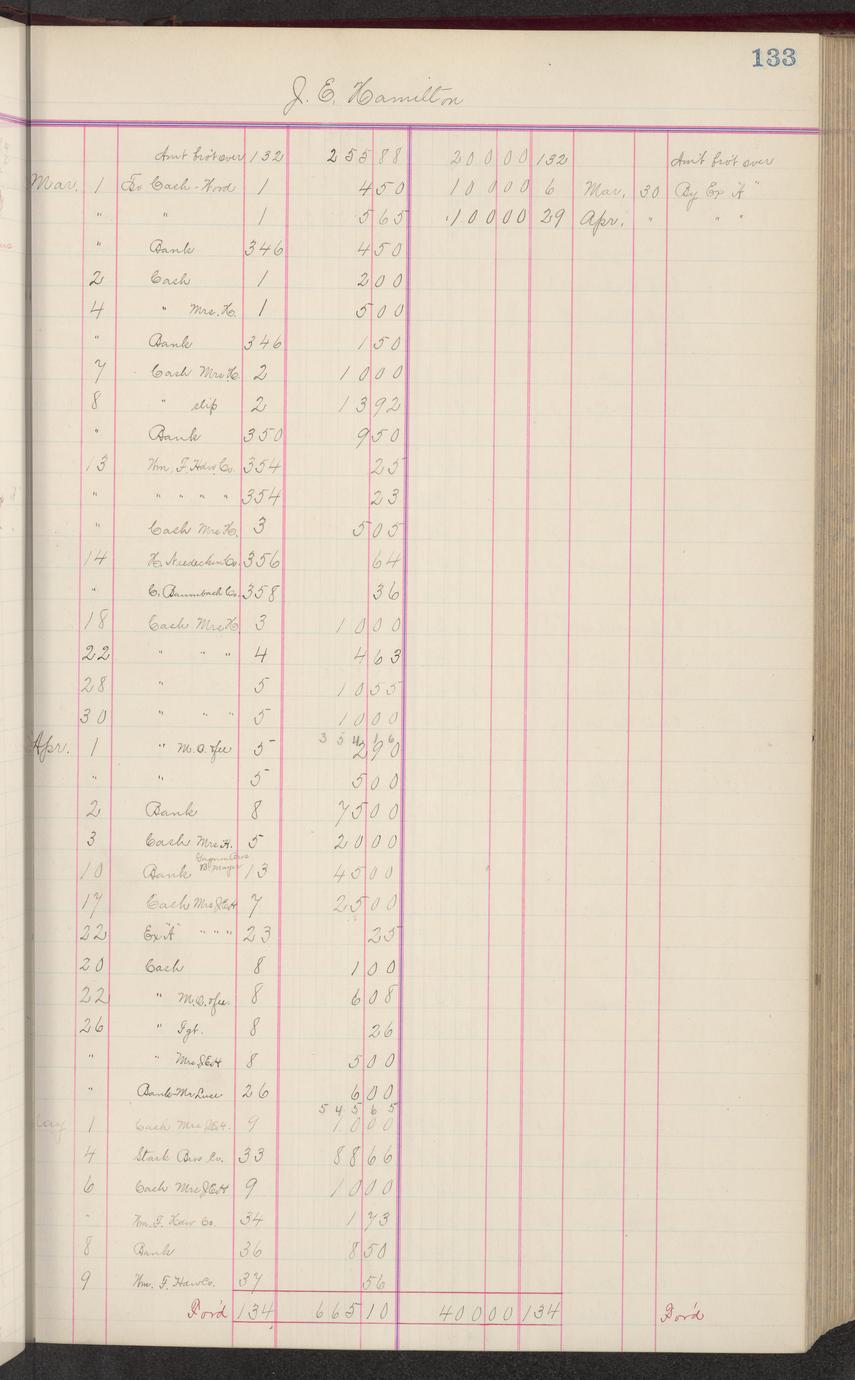 133
J. E. Hamilton
Amt brot over 132 255 88 200 00 132 Amt brot over
Mar. 1 To Cash - Hord 1 4 50 100 00 6 Mar. 30 By Ex "A"
" " 1 5 65 100 00 29 Apr. " " "
" Bank 346 4 50
2 Cash 1 2 00
4 " Mrs. H. 1 5 00
" Bank 346 1 50
7 Cash Mrs. H. 2 10 00
8 " slip 2 13 92
" Bank 350 9 50
13 Wm. F. Haw Co. 354 25
" " " " " 354 23
" Cash Mrs. H. 3 5 05
14 H. Niedecken Co. 356 64
" C. Baumbach Co. 358 36
18 Cash Mrs. H. 3 10 00
22 " " " 4 4 63
28 " 5 10 55
30 " " " 5 10 00
354 16
Apr. 1 " M.O. & fee 5 2 90
" " 5 5 00
2 Bank 8 75 00
3 Cash Mrs. H. 5 20 00
10 Bank B. Mayer 13 45 00
17 Cash Mrs J.E.H 7 25 00
22 Ex "A" " " " 23 25
20 Cash 8 1 00
22 " M.O. & fee. 8 6 08
26 " Fgt. 8 26
" " Mrs J.E.H 8 5 00
" Bank Mr Luse 26 6 00
545 65
May 1 Cash Mrs J.E.H. 9 10 00
4 Stark Bros Co. 33 88 66
6 Cash Mrs J.E.H 9 10 00
" Wm. F. Haw Co. 34 1 73
8 Bank 36 8 50
9 Wm. F. Haw Co. 37 56
For'd 134 665 10 400 00 134 For'd